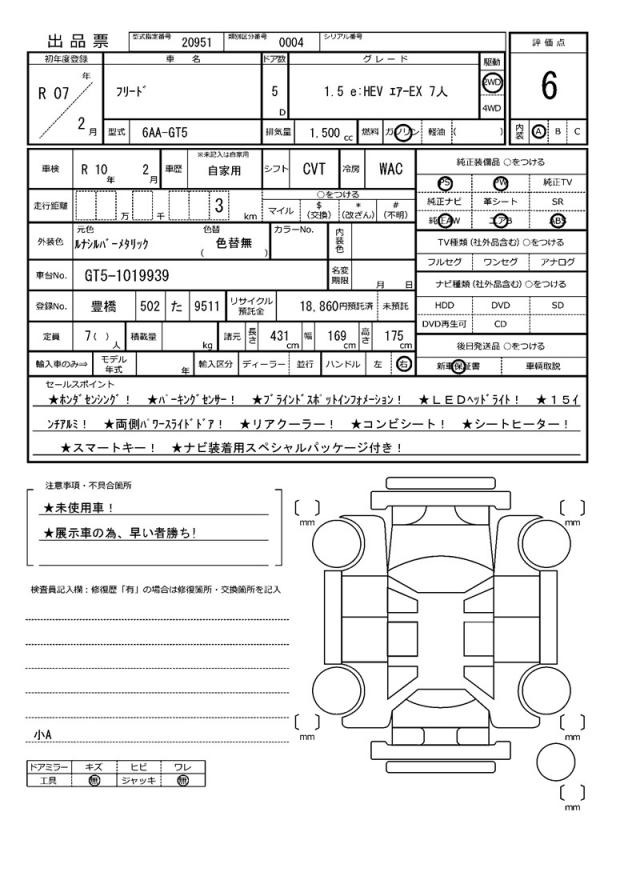 出品票 型式指定番号 20951 類別区分番号 0004 シリアル番号
評価点
6
内装 A B C
初年度登録 車名 ドア数 グレード 駆動
R 07 年 2 月 フリード 5 D 1.5 e:HEV エアーEX 7人 2WD 4WD
型式 6AA-GT5 排気量 1.500 cc 燃料 ガソリン 軽油 ( )
車検 R 10 年 2 月 車歴 ※未記入は自家用 自家用 シフト CVT 冷房 WAC
走行距離 万 千 3 km
○をつける
マイル $ (交換) * (改ざん) # (不明)
外装色 元色 ルナシルバーメタリック 色替 ( 色替無 ) カラーNo. 内装色
車台No. GT5-1019939 名変期限 月 日
登録No. 豊橋 502 た 9511 リサイクル預託金 18,860円預託済 未預託
定員 7( ) 人 積載量 kg 諸元 長さ 431 cm 幅 169 cm 高さ 175 cm
輸入車のみ⇒ モデル年式 年 輸入区分 ディーラー 並行 ハンドル 左 右
純正装備品 ○をつける
PS PW 純正TV
純正ナビ 革シート SR
純正AW エアB ABS
TV種類 (社外品含む) ○をつける
フルセグ ワンセグ アナログ
ナビ種類 (社外品含む) ○をつける
HDD DVD SD
DVD再生可 CD
後日発送品 ○をつける
新車保証書 車輌取説
セールスポイント
★ホンダセンシング! ★パーキングセンサー! ★ブラインドスポットインフォメーション! ★LEDヘッドライト! ★15イ
ンチアルミ! ★両側パワースライドドア! ★リアクーラー! ★コンビシート! ★シートヒーター!
★スマートキー! ★ナビ装着用スペシャルパッケージ付き!
注意事項・不具合箇所
★未使用車!
★展示車の為、早い者勝ち!
検査員記入欄:修復歴「有」の場合は修復箇所・交換箇所を記入
小A
ドアミラー キズ ヒビ ワレ
工具 無 ジャッキ 無
[ ] mm
[ ] mm
[ ] mm
[ ] mm
[ ] mm